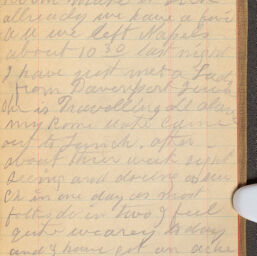 allready we have a
we left Napels
about 10 30 last night
I have just met a Lady
from Davenport Iowa
She is Travelling all alone
my Rome mate came
out to Lunch, after
about three weeks sight
seeing and doeing as
in one day as most
folks do in two I feel
quite weary to day
and I have got an ache